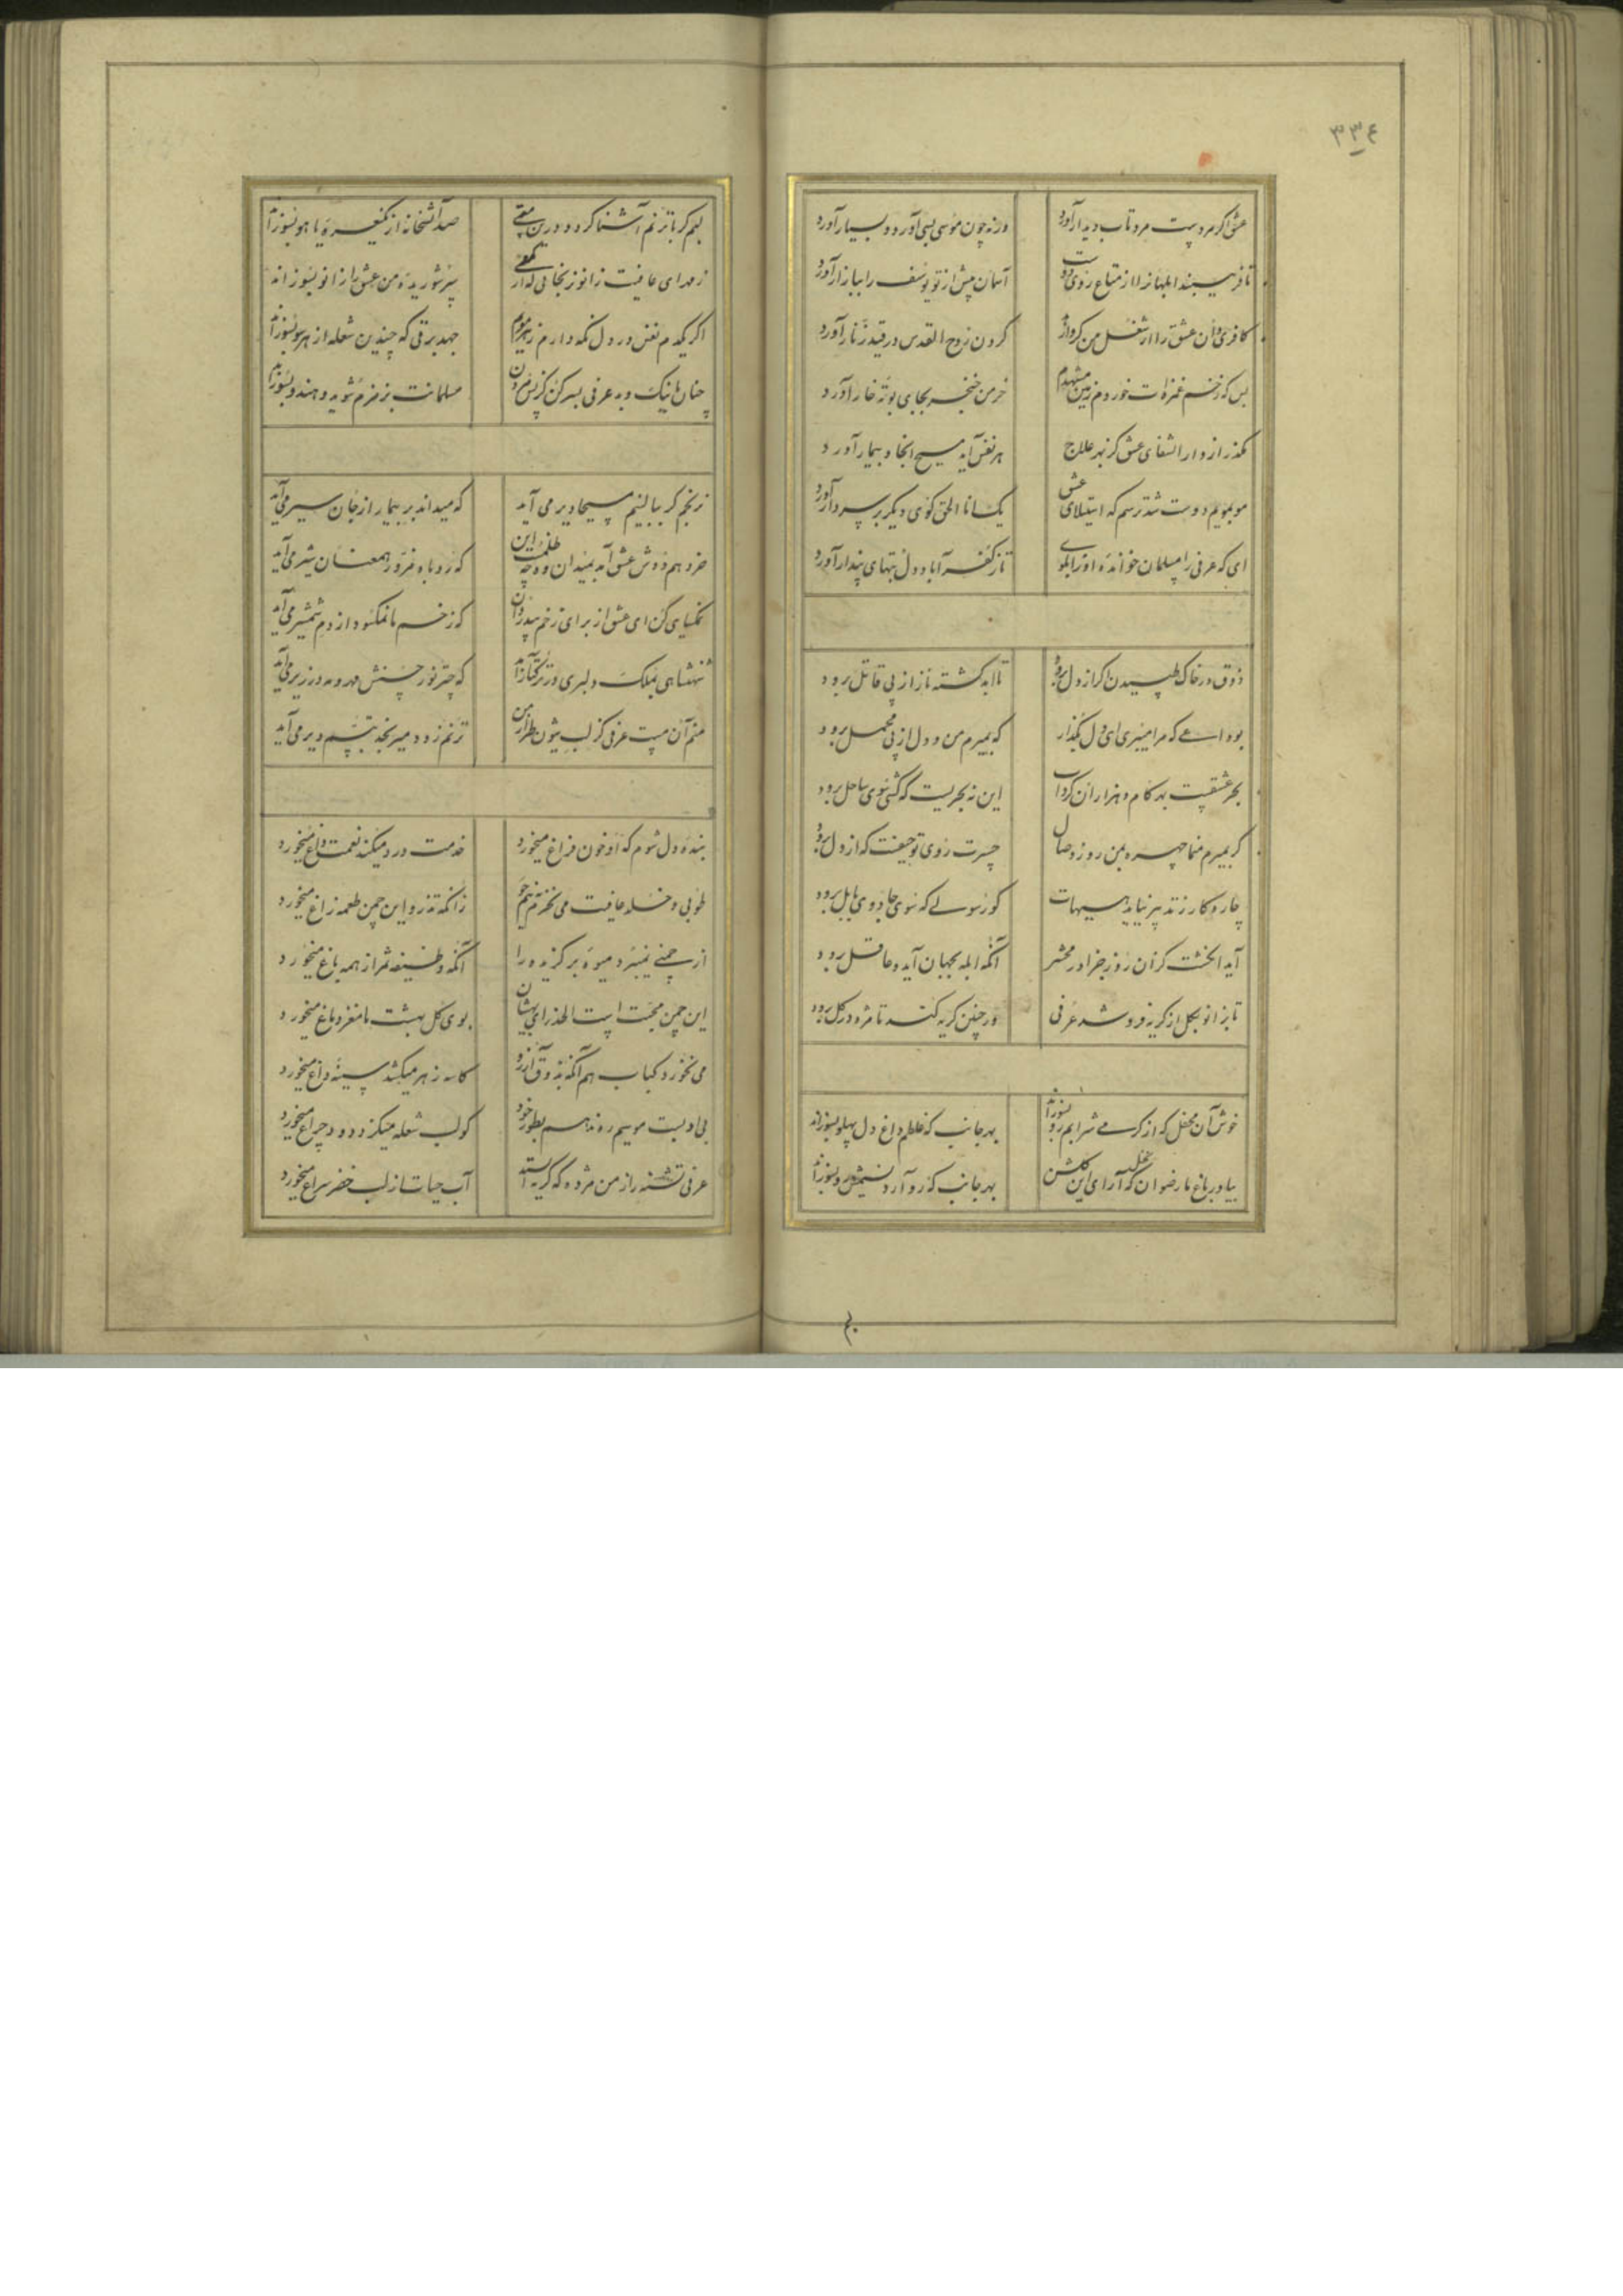 ۳۳۴
عشق اگر مردست مرد تاب دیدار آورد ورنه چون موسی بسی آورد و بسیار آورد
تا فریبند ابلهانرا از متاع روی دوست آسمان پیش از تو یوسف را ببازار آورد
کافری دان عشق را از شغل من کردن روح القدس در قید زنار آورد
بس که زخم غمزه‌ات خوردم زمین مشهدم خرمن خنجر بجای بوته خار آورد
بگذر از دار الشفای عشق کز بهر علاج هر نفس آید مسیح اینجا و بیمار آورد
مو بمویم دوست شد ترسم که استیلای عشق یک انا الحق گوی دیگر بر سر دار آورد
ای که عرفی را مسلمان خوانده او را بگو تا ز کفر آباد دل بتهای پندار آورد
ذوق در خاک طپیدن اگر از دل برود تا ابد کشته ناز از پی قاتل برود
بوداعی که مرا میبری ای دل بگذار که بمیرم من و دل از پی محمل برود
بحر عشقست بهر کام هزاران گرداب این نه بحریست که کشتی سوی ساحل برود
گر بمیرم منما چهره بمن روز وصال حسرت روی تو حیفست که از دل برود
چاره کار ز تدبیر نیاید هیهات کو رسولی که سوی جادوی بابل برود
آید انگشت گزان روز جزا در محشر آنکه ابله بجهان آید و عاقل برود
تا بزانو بگل از گریه فرو شد عرفی ور چنین گریه کند تا مژه در گل برود
خوش آن محفل که از گرمی شرابم رو بسوزاند بهر جانب که غلطم داغ دل پهلو بسوزاند
بیا در باغ ما رضوان که نخل آرای این گلشن بهر جانب که رو آرد نسیمش رو بسوزاند
لبم گر با ترنم آشنا گردد درین مستی صد آتشخانه از یک نعره یا هو بسوزاند
ز مهد ای عافیت زانو سر شوریده من عشق را زانو بسوزاند
اگر یکدم نفس در دل نگه دارم ز هر مویم جهد برقی که چندین شعله از هر سو بسوزاند
چنان با نیک و بد عرفی بسر کن کز پس مردن مسلمانت بزمزم شوید و هندو بسوزاند
نرنجم گر ببالینم مسیحا دیر می آید که میداند بر بیمار از جان سیر می آید
خرد هم دوش عشق آمد بمیدان وه چه ظلمست این که روباه مزور همعنان شیر می آید
نمکسایی کن ای عشق از برای زخم بیدردان که زخم ما نمکسود از دم شمشیر می آید
شهنشاهی بملک دلبری در ترکتاز آمد که چتر نور حسنش مهر و مه در زیر می آید
منم آن مست عرفی کز لب شیون طراز من ترنم زود میرنجد تبسم دیر می آید
بنده دل شوم که او خون فراغ میخورد خدمت درد میکند نعمت داغ میخورد
طوبی و خلد عافیت می نخرم به نیم جو زانکه تذرو این چمن طعمه زاغ میخورد
از چمنی نمیبرد میوه برگزیده را آنکه وظیفه ثمر از همه باغ میخورد
این چمن محبت است الحذر ای بهشتیان بوی گل بهشت ما مغز دماغ میخورد
می نخورد کباب هم آنکه بذوق آرزو کاسه زهر میکشد سینه داغ میخورد
بی ادبست موسیم ره ندهم بطور خود کو لب شعله میگزد دود چراغ میخورد
عرفی تشنه راز من مژده که گریه آب حیات از لب خضر سراغ میخورد